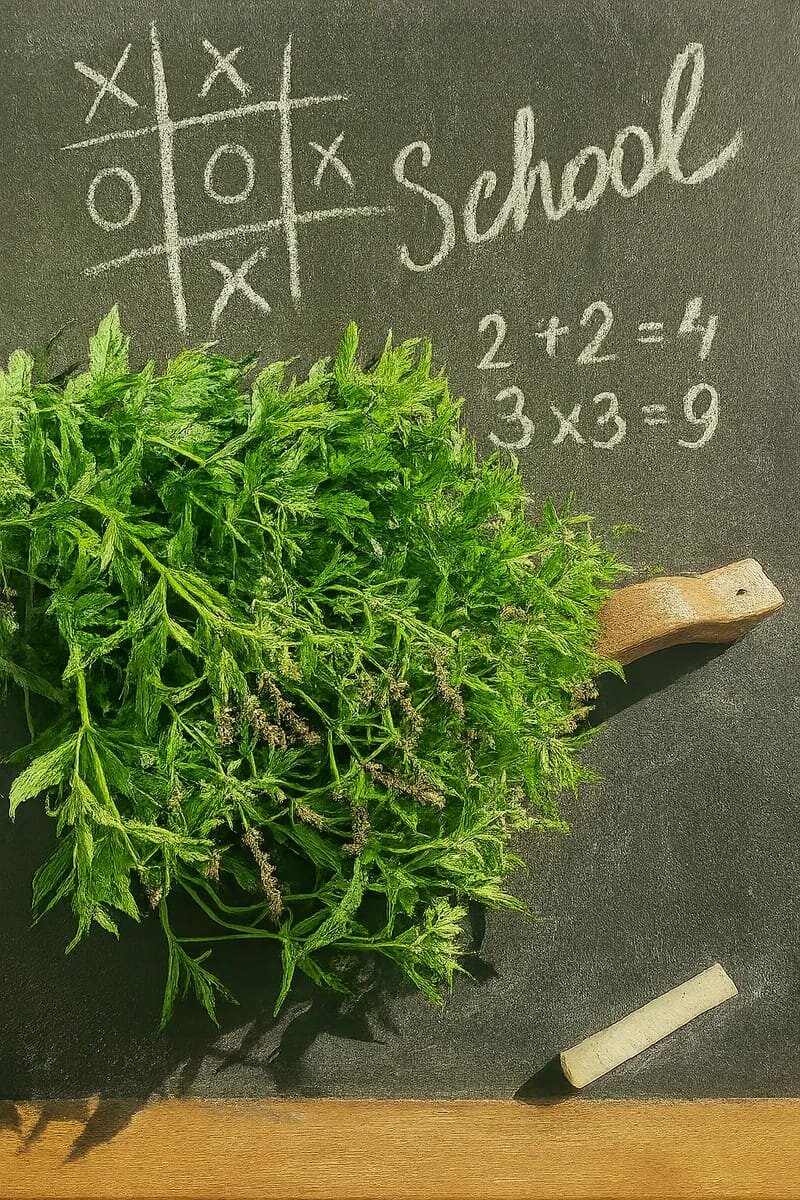 X X
O O X
X
School
2 + 2 = 4
3 x 3 = 9